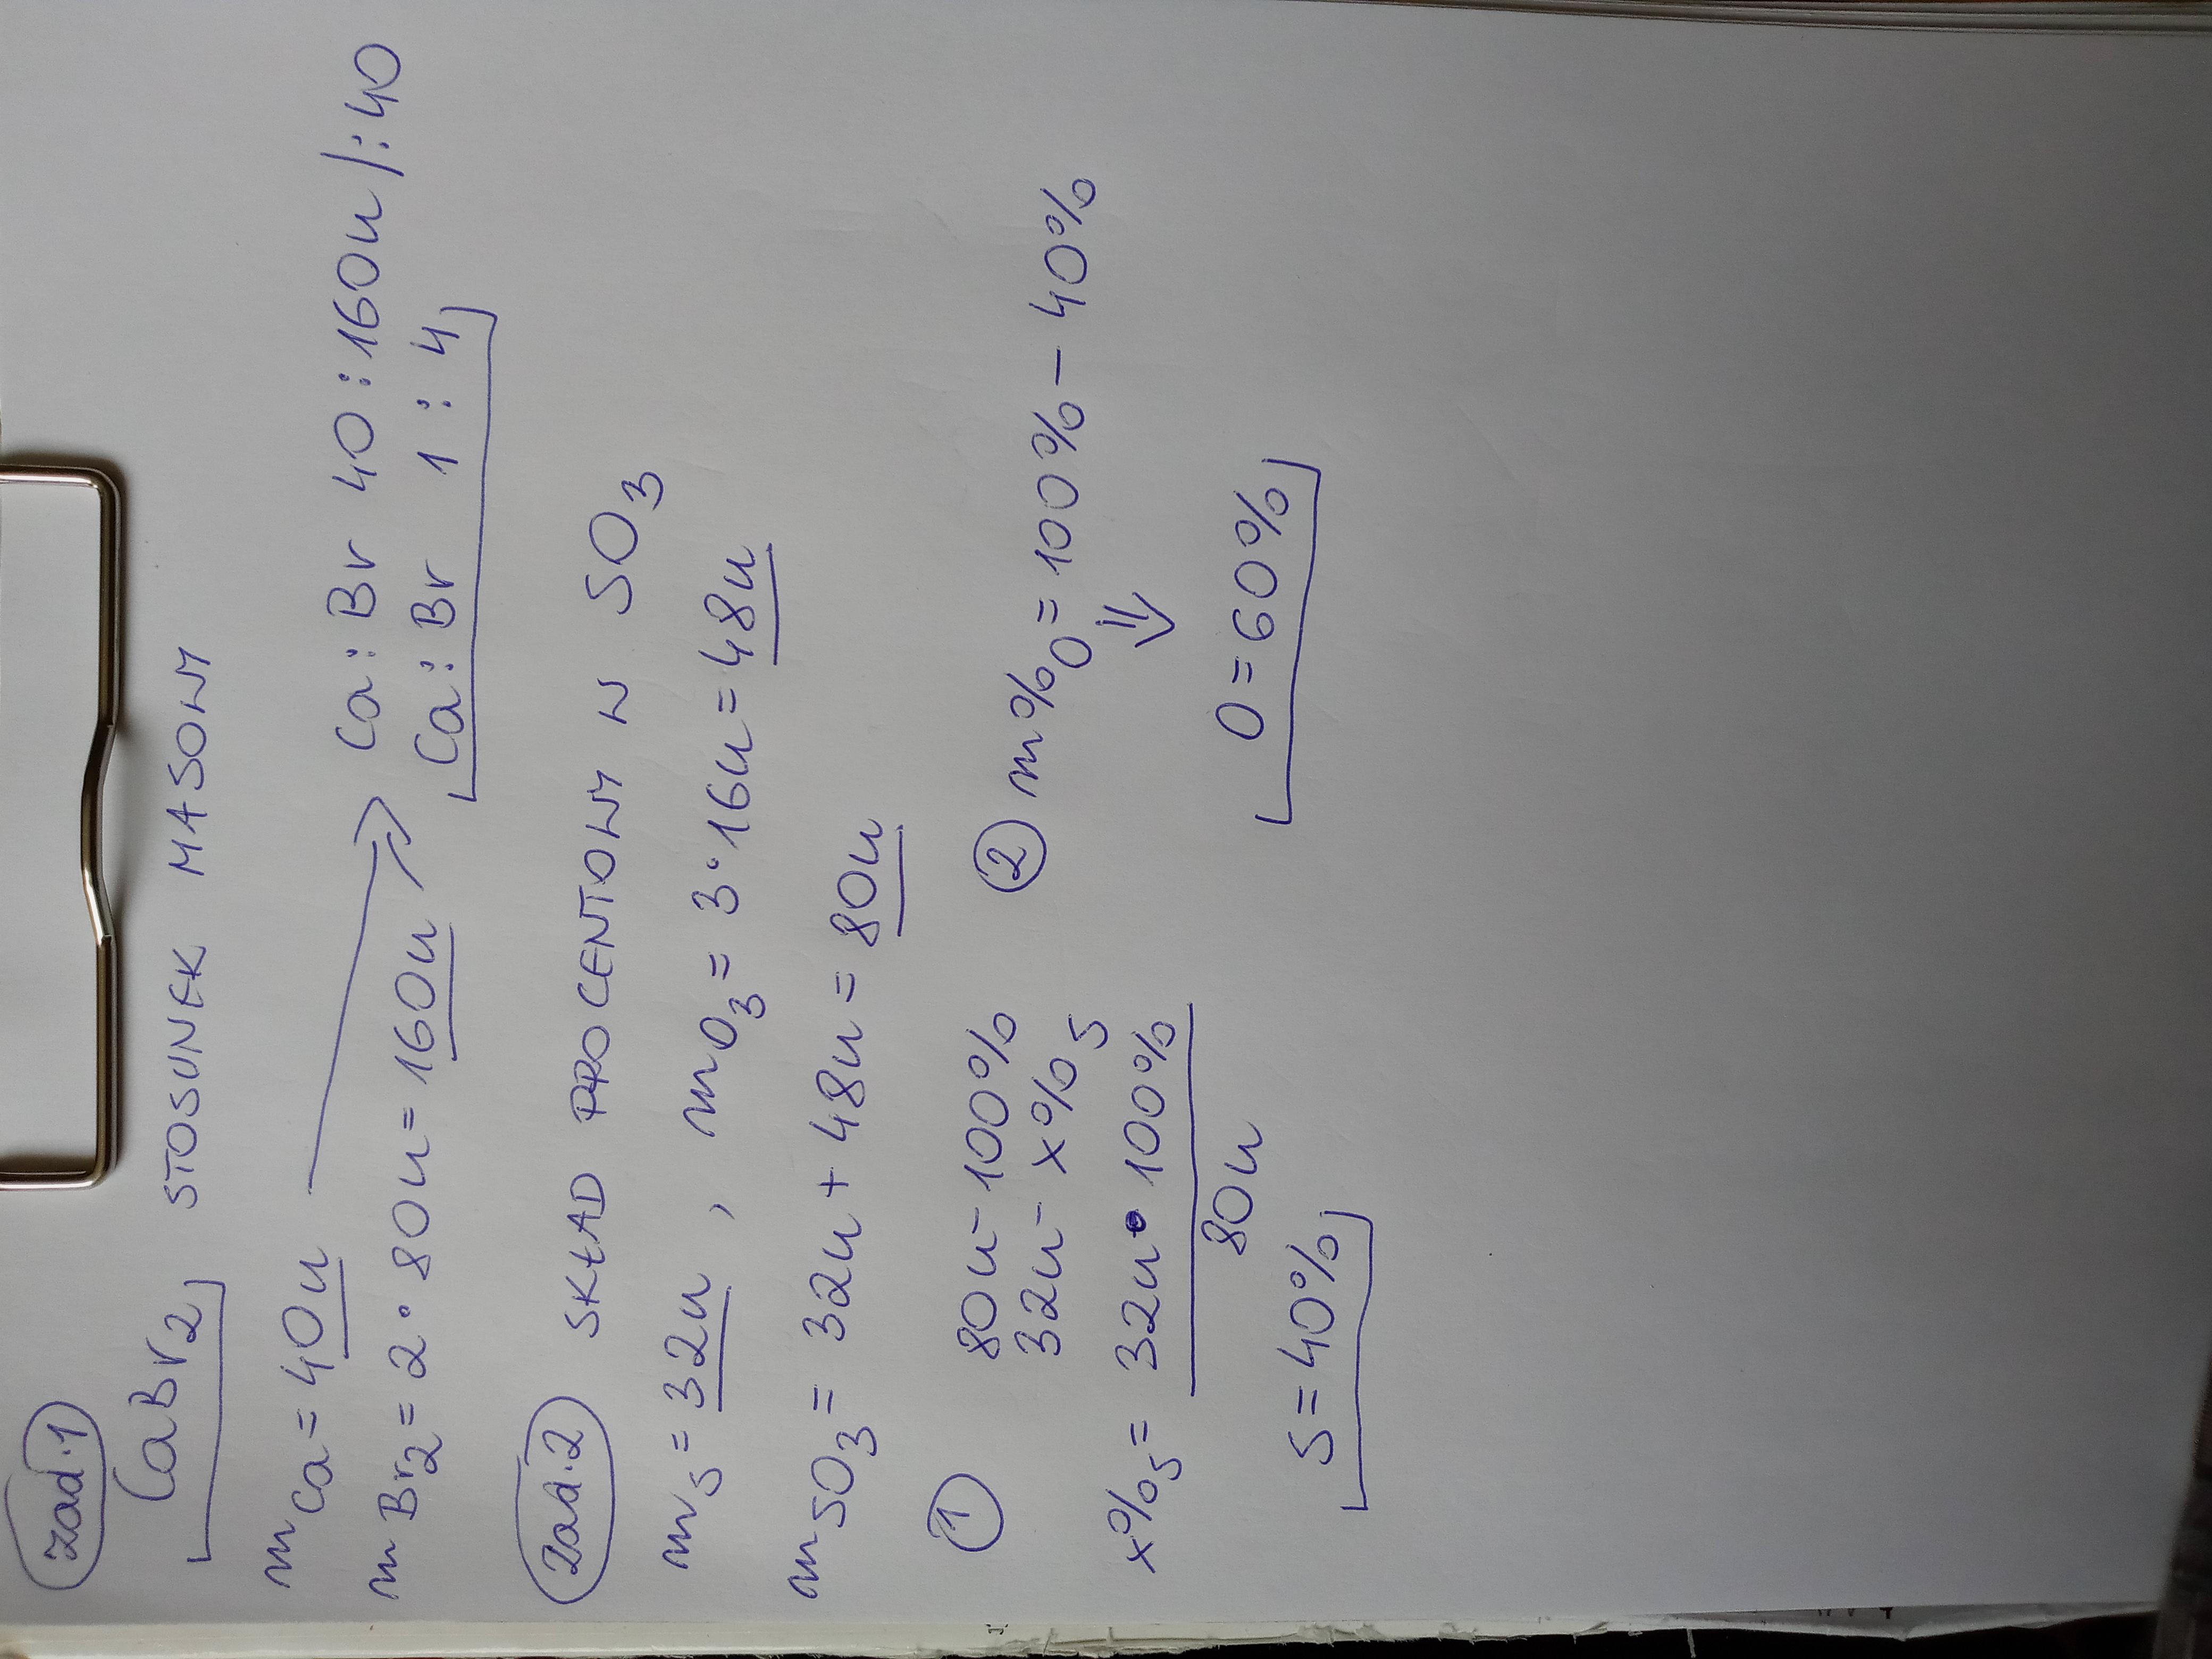 zad.1
CaBr₂ STOSUNEK MASOWY
mCa = 40u
mBr₂ = 2 · 80u = 160u
Ca : Br 40 : 160u /: 40
Ca : Br 1 : 4
zad.2 SKŁAD PROCENTOWY W SO₃
mS = 32u , mO₃ = 3 · 16u = 48u
mSO₃ = 32u + 48u = 80u
1
80u - 100%
32u - x%S
x%S = 32u · 100%
80u
S = 40%
2 m%O = 100% - 40%
⇓
O = 60%